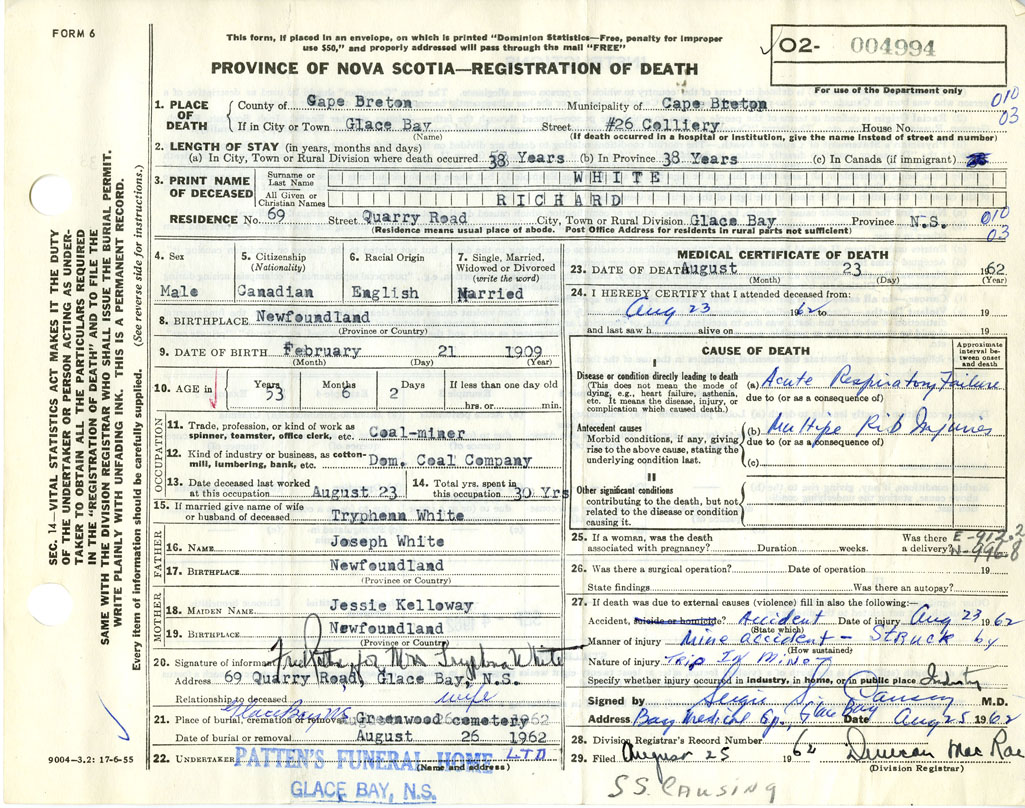 FORM 6
This form, if placed in an envelope, on which is printed "Dominion Statistics—Free, penalty for improper
use $50," and properly addressed will pass through the mail "FREE"
O2- 004994
PROVINCE OF NOVA SCOTIA—REGISTRATION OF DEATH
For use of the Department only
010
03
1. PLACE OF DEATH
County of Cape Breton Municipality of Cape Breton
If in City or Town Glace Bay Street #26 Colliery House No.
(Name) (If death occurred in a hospital or institution, give the name instead of street and number)
2. LENGTH OF STAY (in years, months and days)
(a) In City, Town or Rural Division where death occurred 38 Years (b) In Province 38 Years (c) In Canada (if immigrant)
3. PRINT NAME OF DECEASED
Surname or Last Name WHITE
All Given or Christian Names RICHARD
RESIDENCE No. 69 Street Quarry Road City, Town or Rural Division Glace Bay Province N.S.
(Residence means usual place of abode. Post Office Address for residents in rural parts not sufficient)
010
03
4. Sex Male
5. Citizenship (Nationality) Canadian
6. Racial Origin English
7. Single, Married, Widowed or Divorced (write the word) Married
8. BIRTHPLACE Newfoundland
(Province or Country)
9. DATE OF BIRTH February 21 1909
(Month) (Day) (Year)
10. AGE in Years 53 Months 6 Days 2 If less than one day old
hrs. or min.
OCCUPATION
11. Trade, profession, or kind of work as spinner, teamster, office clerk, etc. Coal-miner
12. Kind of industry or business, as cotton-mill, lumbering, bank, etc. Dom. Coal Company
13. Date deceased last worked at this occupation August 23
14. Total yrs. spent in this occupation 30 Yrs
15. If married give name of wife or husband of deceased Tryphena White
FATHER
16. NAME Joseph White
17. BIRTHPLACE Newfoundland
(Province or Country)
MOTHER
18. MAIDEN NAME Jessie Kelloway
19. BIRTHPLACE Newfoundland
(Province or Country)
20. Signature of informant for Mrs Tryphena White
Address 69 Quarry Road, Glace Bay, N.S.
Relationship to deceased wife
21. Place of burial, cremation or removal Glace Bay NS Greenwood cemetery
Date of burial or removal August 26 1962
22. UNDERTAKER PATTEN'S FUNERAL HOME LTD
(Name and address)
GLACE BAY, N.S.
MEDICAL CERTIFICATE OF DEATH
23. DATE OF DEATH August 23 1962
(Month) (Day) (Year)
24. I HEREBY CERTIFY that I attended deceased from:
Aug 23 1962 to 19
and last saw h alive on 19
CAUSE OF DEATH
Approximate interval between onset and death
I
Disease or condition directly leading to death
(This does not mean the mode of dying, e.g., heart failure, asthenia, etc. It means the disease, injury, or complication which caused death.)
(a) Acute Respiratory Failure
due to (or as a consequence of)
Antecedent causes
Morbid conditions, if any, giving rise to the above cause, stating the underlying condition last.
(b) Multipe Rib Injuries
due to (or as a consequence of)
(c)
II
Other significant conditions
contributing to the death, but not related to the disease or condition causing it.
25. If a woman, was the death associated with pregnancy? Duration weeks. Was there a delivery?
E-912.2
N-996.8
26. Was there a surgical operation? Date of operation 19
State findings Was there an autopsy?
27. If death was due to external causes (violence) fill in also the following:
Accident, suicide or homicide? Accident Date of injury Aug 23 1962
(State which)
Manner of injury Mine accident - Struck by
(How sustained)
Nature of injury Trip In Mine
Specify whether injury occurred in industry, in home, or in public place Industry
Signed by M.D.
Address Bay Medical Gp., Glace Bay Date Aug 25 1962
28. Division Registrar's Record Number
29. Filed August 25 1962 Duncan MacRae
(Division Registrar)
S S. CAUSING
SEC. 14—VITAL STATISTICS ACT MAKES IT THE DUTY
OF THE UNDERTAKER OR PERSON ACTING AS UNDER-
TAKER TO OBTAIN ALL THE PARTICULARS REQUIRED
IN THE "REGISTRATION OF DEATH" AND TO FILE THE
SAME WITH THE DIVISION REGISTRAR WHO SHALL ISSUE THE BURIAL PERMIT.
WRITE PLAINLY WITH UNFADING INK. THIS IS A PERMANENT RECORD.
Every item of information should be carefully supplied. (See reverse side for instructions.)
9004-3.2: 17-6-55